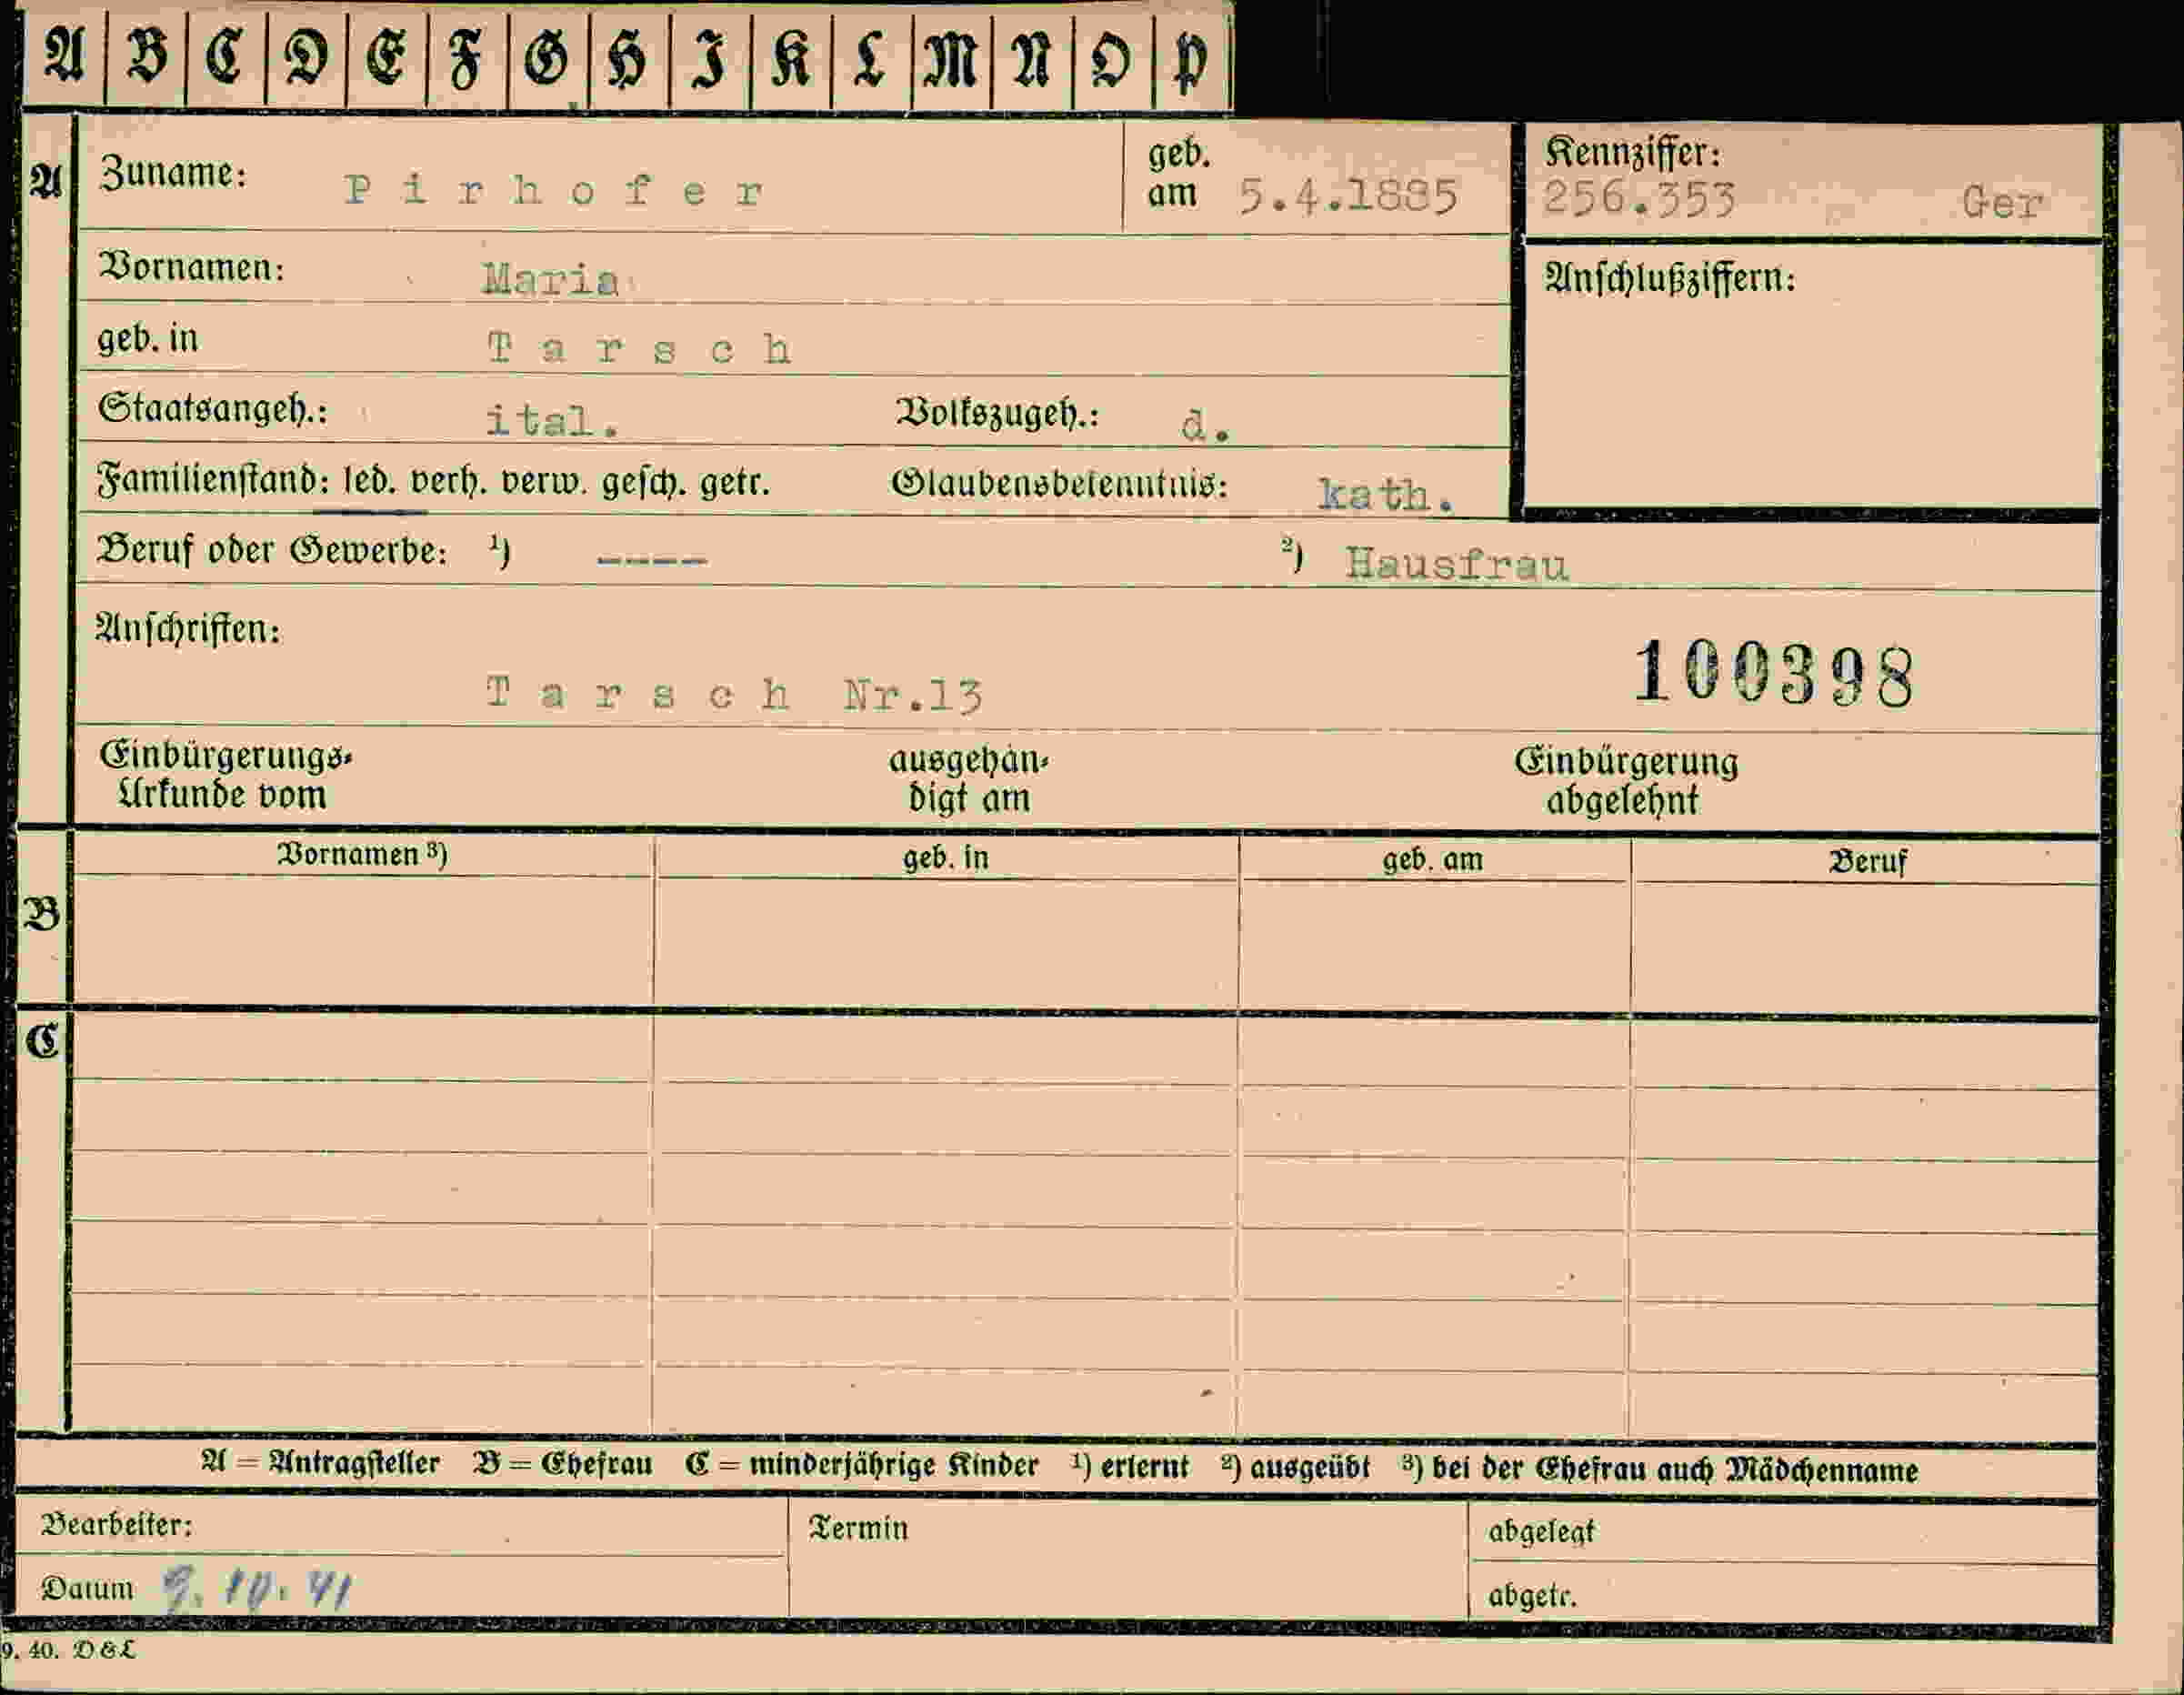 A B C D E F G H I K L M N O P
A Zuname: Pirhofer geb. am 5.4.1885 Kennziffer: 256.353 Ger
Vornamen: Maria Anschlußziffern:
geb. in Tarsch
Staatsangeh.: ital. Volkszugeh.: d.
Familienstand: led. verh. verw. gesch. getr. Glaubensbekenntnis: kath.
Beruf oder Gewerbe: ¹) ---- ²) Hausfrau
Anschriften:
Tarsch Nr.13 100398
Einbürgerungs- ausgehän- Einbürgerung
Urkunde vom digt am abgelehnt
Vornamen ³) geb. in geb. am Beruf
B
C
A = Antragsteller B = Ehefrau C = minderjährige Kinder ¹) erlernt ²) ausgeübt ³) bei der Ehefrau auch Mädchenname
Bearbeiter: Termin abgelegt
Datum 9.10.41 abgetr.
9. 40. D & L